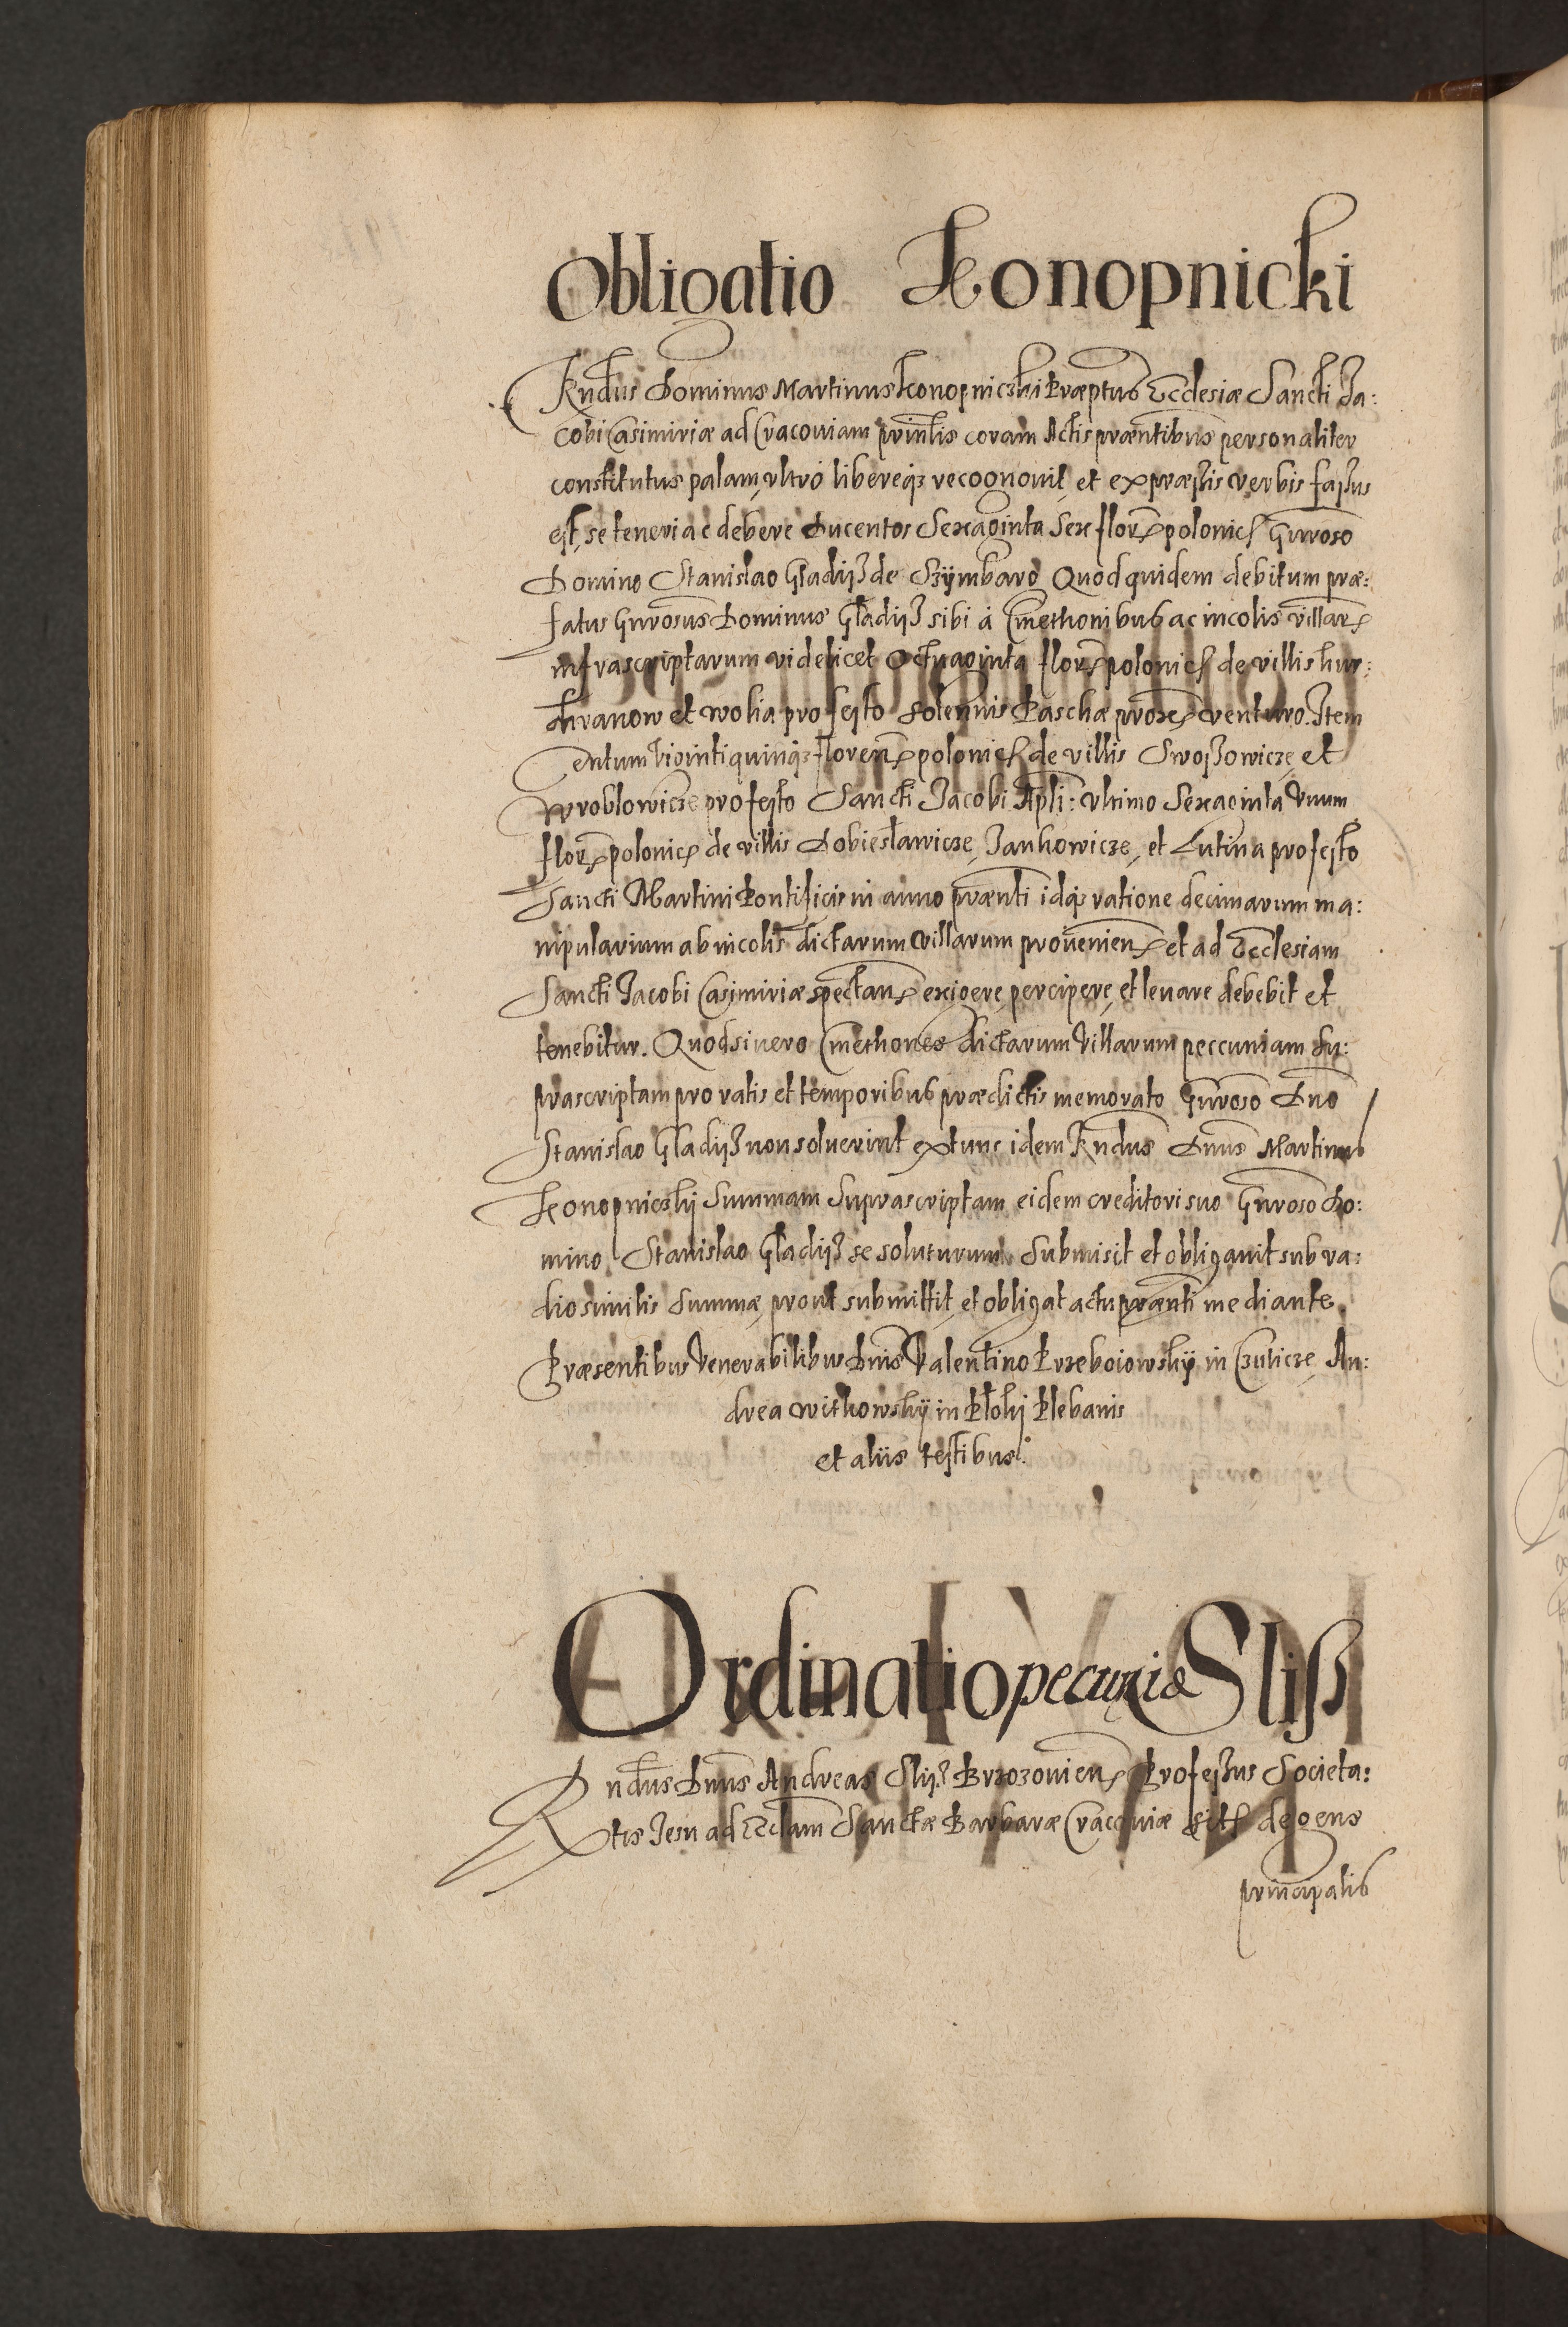 Obligatio Konopnicki
Rndus Dominus Martinus Konopniczki Præptus Ecclesiæ Sancti Ja:
cobi Casimiriæ ad Cracouiam prinlis coram Actis præntibus personaliter
constitutus palam, vltro libereq3 recognouit, et expræssis verbis fassus
est, se teneri ac debere Ducentos Sexaginta Sex floren polonic Gnroso
Domino Stanislao Gladijß de Szÿmbarg Quod quidem debitum præ:
fatus Gnrosus Dominus Gładijß sibi á Cmethonibus ac incolis villar
infrascriptarum videlicet Octuaginta floren polonic de villis hur:
thranow et wolia pro festo Solennis Paschæ proxe venturo. Item
Centum viginti quinq3 floren polonic de villis Swoszowicze et
Wroblowicze pro festo Sancti Jacobi Apli: vltimo Sexaginta Vnum
floren polonic de villis Dobiesławicze, Jankowicze, et Lutina pro festo
Sancti Martini Pontificis in anno prænti idq3 ratione decimarum ma:
nipularium ab incolis dictarum villarum prouenien et ad Ecclesiam
Sancti Jacobi Casimiriæ spectan exigere, percipere, et leuare debebit et
tenebitur. Quod si uero Cmethones dictarum Villarum peccuniam su:
prascriptam pro ratis et temporibus prædictis memorato Gnroso Dno
Stanislao Gladijß non soluerint extunc idem Rndus Dnus Martinus
Konopniczkij Summam Suprascriptam eidem creditori suo Gnroso Do:
mino Stanislao Gładijß se soluturum Submisit et obligauit sub va:
dio similis Summæ, prout submittit, et obligat actu prænti mediante.
Præsentibus Venerabilibus Dnis Valentino Przeboiowskÿ in Czulicze, An:
drea withowskÿ in Płokj Plebanis
et aliis testibus.
Ordinatio pecuniæ Sliß
Rndus Dnus Andreas Slijß Brzozouien Professus Societa:
tis Jesu ad Ecclam Sanctæ Barbaræ Cracouiæ sit degens
principalis